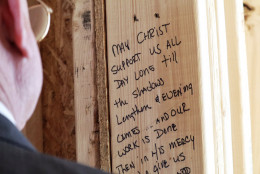 MAY CHRIST
SUPPORT US ALL
DAY LONG till
the SHADOWS
Lengthen & EVENING
COMES... AND OUR
WORK IS DONE
Then IN HIS MERCY
give us